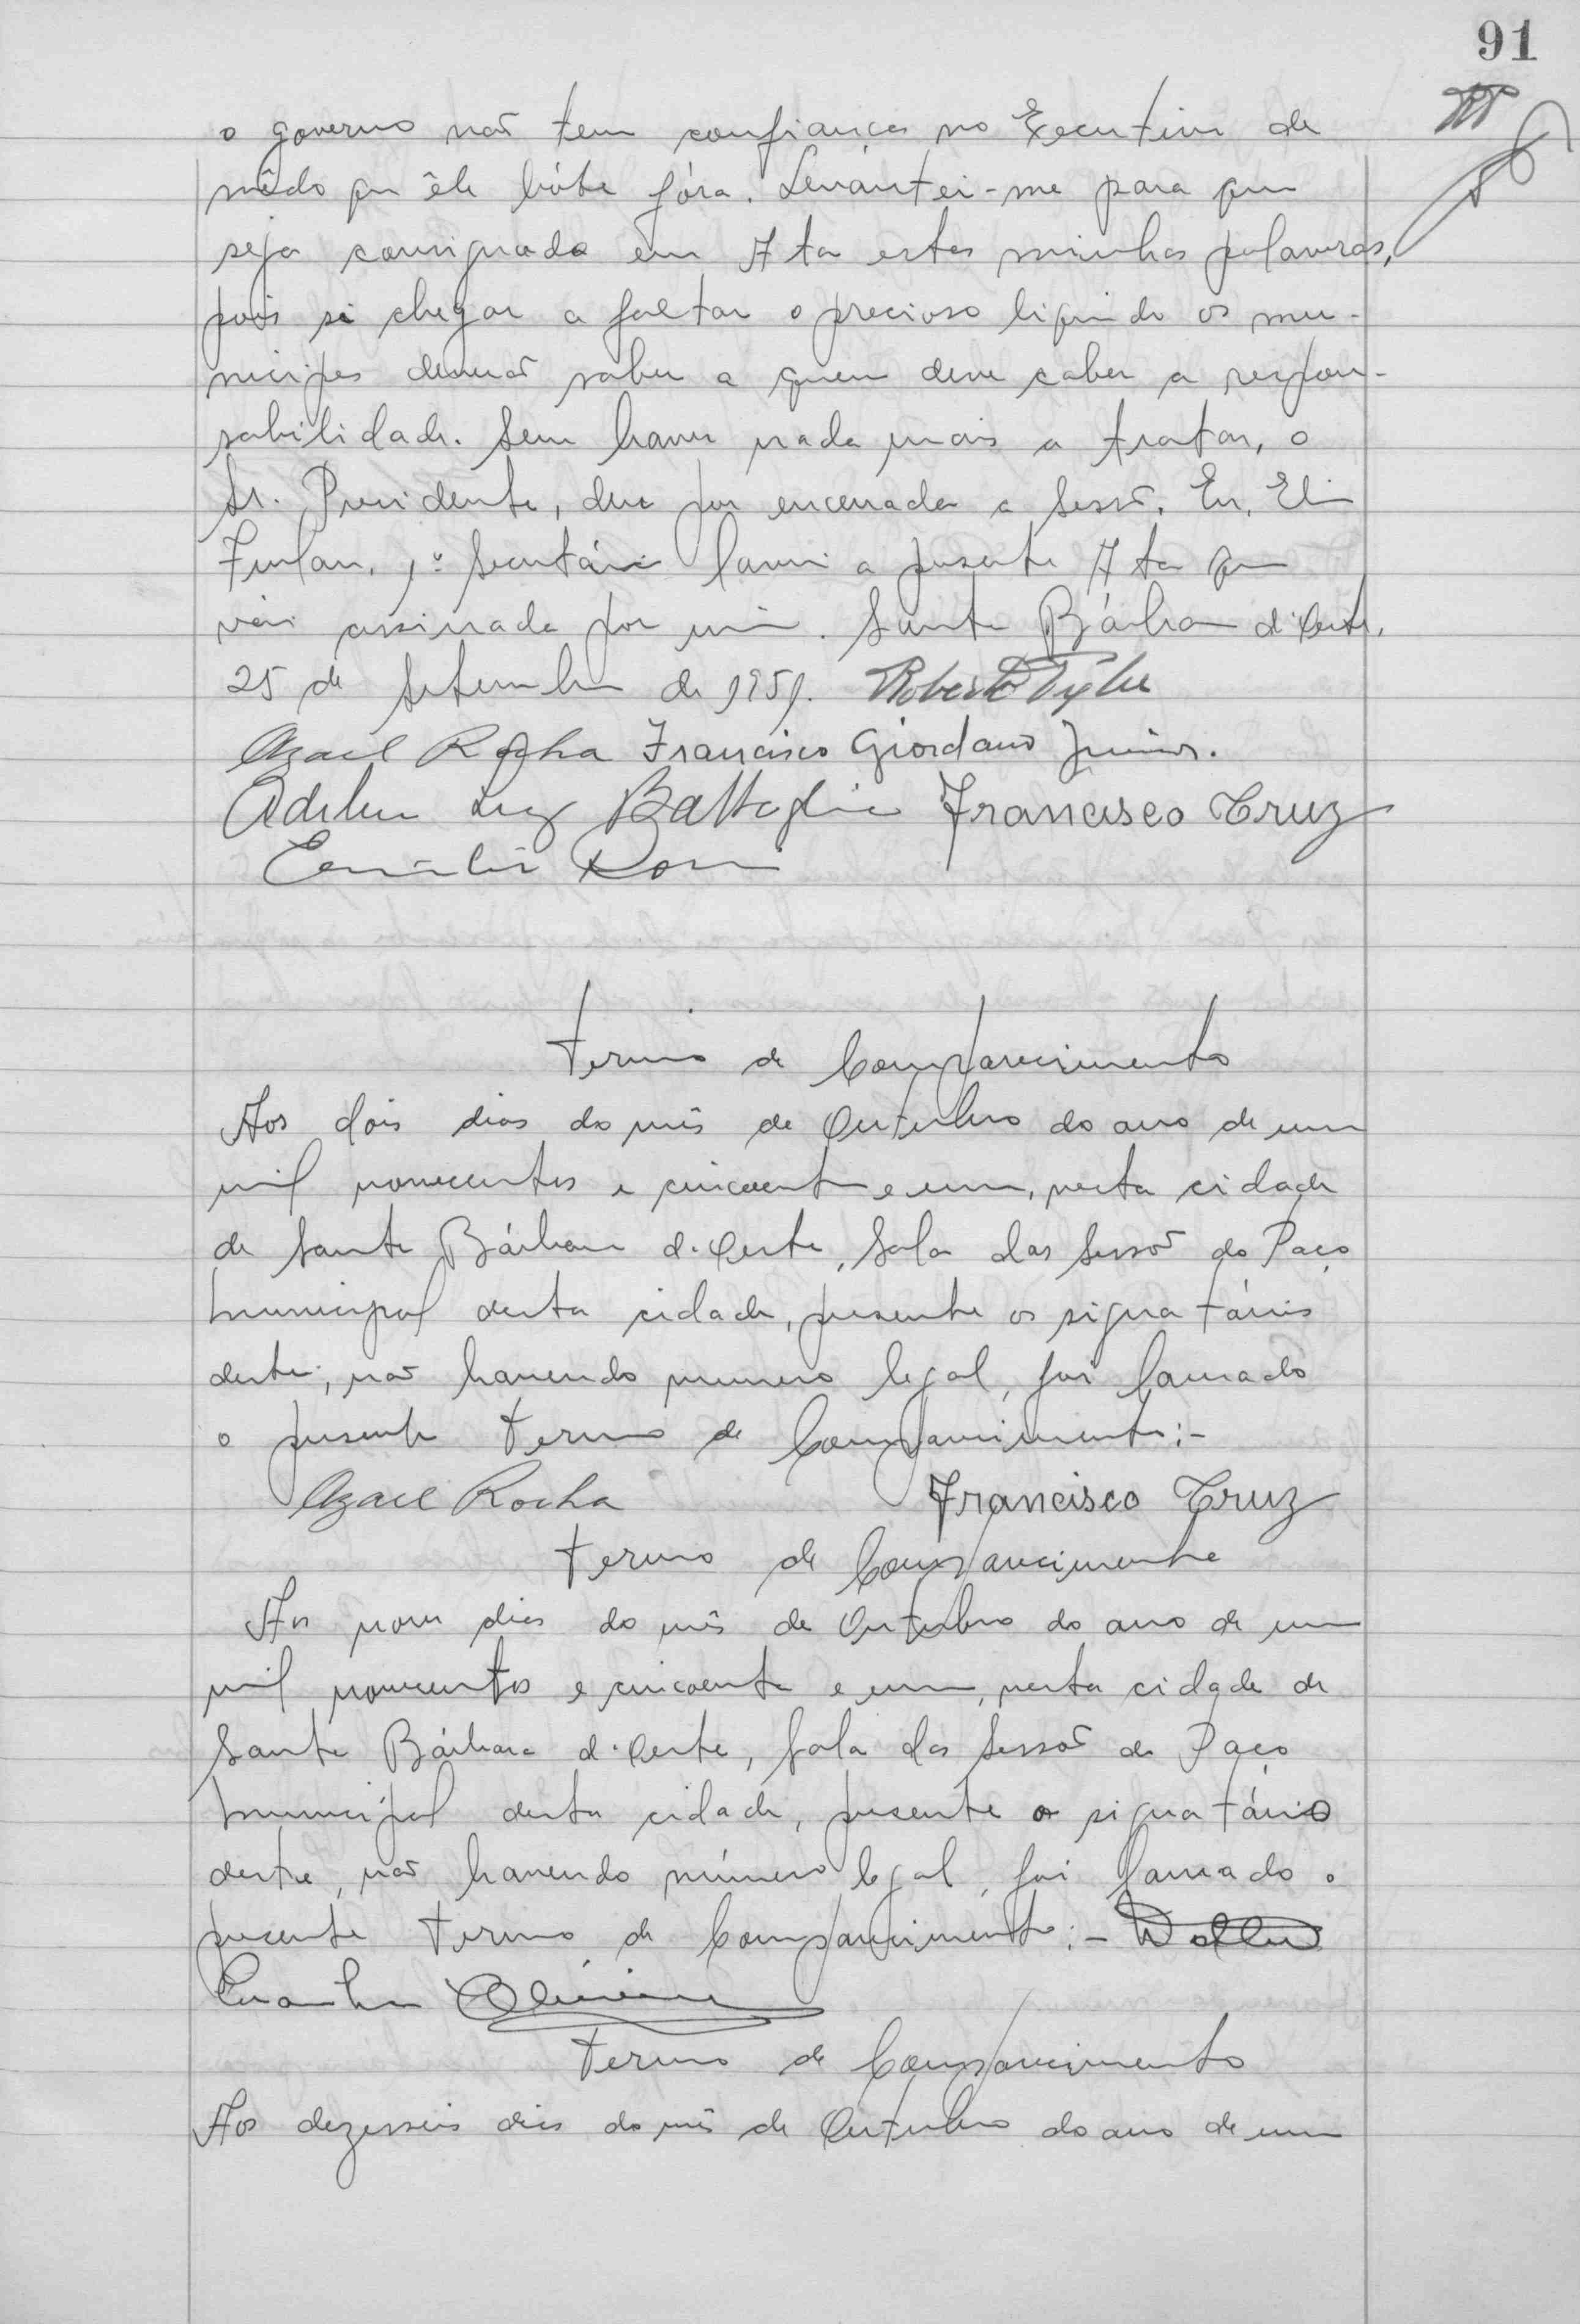 91
o governo não tem confiança no Executivo de
môdo que êle bóte fóra. Levantei-me para que
seja consignada em Ata estas minhas palavras,
pois si chegar a faltar o precioso liquido os mu-
nicipes deverão saber a quem deve caber a respon-
sabilidade. Sem haver nada mais a tratar, o
Sr. Presidente, deu por encerrada a Sessão. Eu, Eli
Furlan, 1º Secretário lavrei a presente Ata que
vai assinada por mim. Santa Bárbara d'Oeste,
25 de Setembro de 1951. Roberto
Azael Rocha Francisco Giordano Junior.
Battaglia Francisco Cruz
Termo de Comparecimento
Aos dois dias do mês de Outubro do ano de um
mil novecentos e cincoenta e um, nesta cidade
de Santa Bárbara d'Oeste, Sala das Sessões do Paço
Municipal desta cidade, presente os signatários
deste, não havendo numero legal, foi lavrado
o presente Termo de Comparecimento:-
Azael Rocha Francisco Cruz
Termo de Comparecimento
Aos nove dias do mês de Outubro do ano de um
mil novecentos e cincoenta e um, nesta cidade de
Santa Bárbara d'Oeste, Sala das Sessões do Paço
Municipal desta cidade, presente o signatário
deste, não havendo número legal, foi lavrado o
presente Termo de Comparecimento:-
Termo de Comparecimento
Aos dezesseis dias do mês de Outubro do ano de um